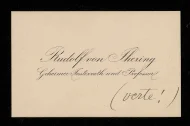 Rudolf von Ihering
Geheimer Justizrath und Professor
(verte!)